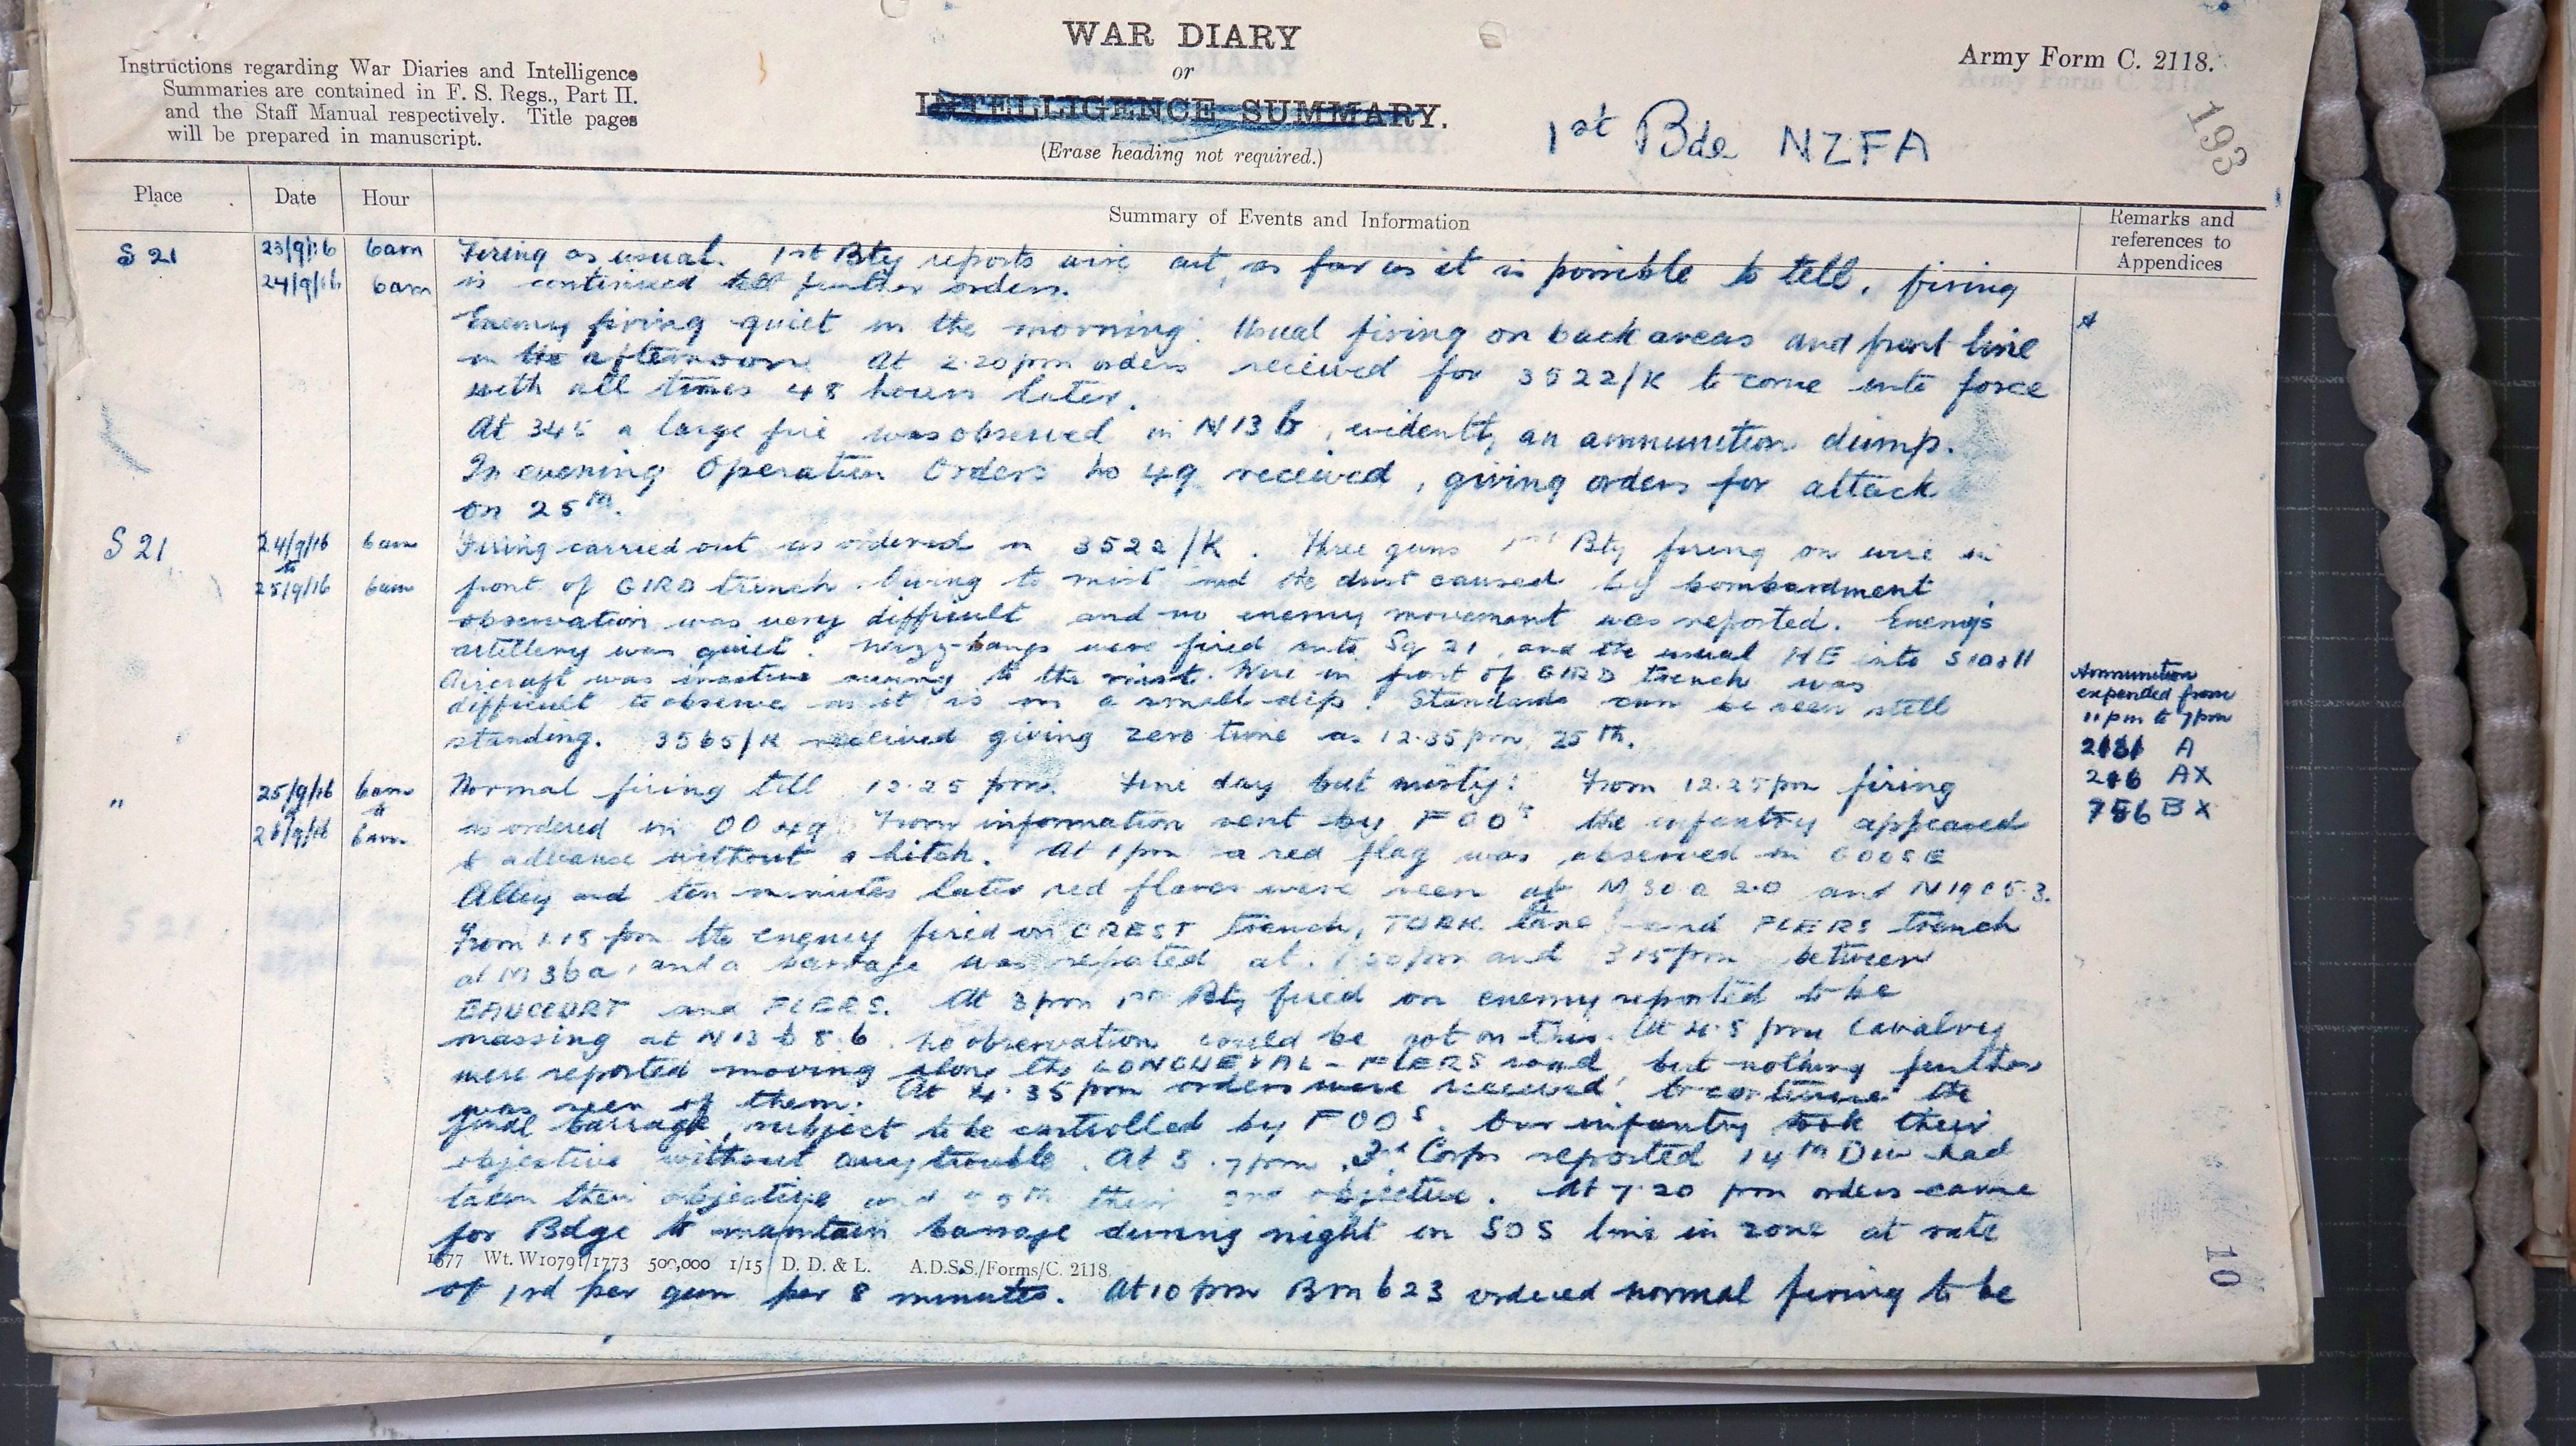 WAR DIARY
or
INTELLIGENCE SUMMARY.
(Erase heading not required.)
Instructions regarding War Diaries and Intelligence
Summaries are contained in F. S. Regs., Part II.
and the Staff Manual respectively. Title pages
will be prepared in manuscript.
Army Form C. 2118.
1st Bde NZFA
193
Place
Date
Hour
Summary of Events and Information
Remarks and
references to
Appendices
S 21 23/9/16 6am Firing as usual. 1st Bty reports wire cut, as far as it is possible to tell, firing
24/9/16 6am is continued till further orders.
Enemy firing quiet in the morning. Usual firing on back areas and front line
in the afternoon. At 2.20pm orders received for 3522/K to come into force
with all times 48 hours later.
At 345 a large fire was observed in N13 b, evidently an ammunition dump.
In evening Operation Orders No 49 received, giving orders for attack
on 25th.
S 21 24/9/16 6am Firing carried out as ordered in 3522/K. Three guns 1st Bty firing on wire in
to
25/9/16 6am front of GIRD trench. Owing to mist and the dust caused by bombardment
observation was very difficult and no enemy movement was reported. Enemy's
artillery was quiet. Whizz-bangs were fired into Sq 21, and the usual HE into S10 & 11
Aircraft was inactive owing to the mist. Wire in front of GIRD trench was
difficult to observe as it is in a small dip. Standards can be seen still
standing. 3565/K received giving zero time as 12.35pm 25th.
Ammunition
expended from
11pm to 7pm
A
AX
BX
" 25/9/16 6am Normal firing till 12.25 pm. Fine day but misty. From 12.25pm firing
to
26/9/16 6am as ordered in OO 49. From information sent by FOOs the infantry appeared
to advance without a hitch. At 1pm a red flag was observed in GOOSE
Alley and ten minutes later red flares were seen at M 30 a 2.0 and N19 c 5.3.
From 1.15 pm the enemy fired on CREST trench, TURK lane and FLERS trench
at M 36 a, and a barrage was reported at and 3.15pm between
EAUCOURT and FLERS. At 3pm 1st Bty fired on enemy reported to be
massing at N13 b 8.6. No observation could be got on this. At 4.5 pm Cavalry
were reported moving along the LONGUEVAL - FLERS road, but nothing further
was seen of them. At 4.35pm orders were received to continue the
final barrage, subject to be controlled by FOOs. Our infantry took their
objective without any trouble. At 5.7pm Corps reported 14th Div had
taken their objective and their 2nd objective. At 7.20 pm orders came
for Bdge to maintain barrage during night on SOS line in zone at rate
1577 Wt. W10791/1773 500,000 1/15 D. D. & L. A.D.S.S./Forms/C. 2118.
of 1rd per gun per 8 minutes. At 10 pm Bm 623 ordered normal firing to be
10